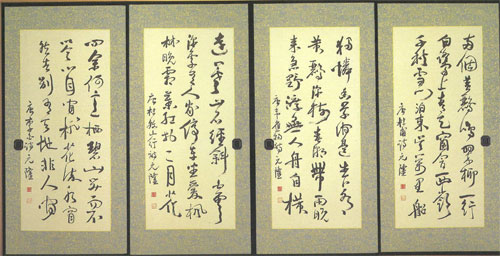 兩個黃鸝鳴翠柳一行
白鷺上青天窗含西嶺
千秋雪門泊東吳萬里船
唐杜甫詩元隆
獨憐幽草澗邊生上有
黃鸝深樹鳴春潮帶雨晚
來急野渡無人舟自橫
唐韋應物詩元隆
遠上寒山石徑斜白雲
深處有人家停車坐愛楓
林晚霜葉紅於二月花
唐杜牧山行詩元隆
問余何意栖碧山笑而不
答心自閑桃花流水窅
然去別有天地非人間
唐李白詩元隆